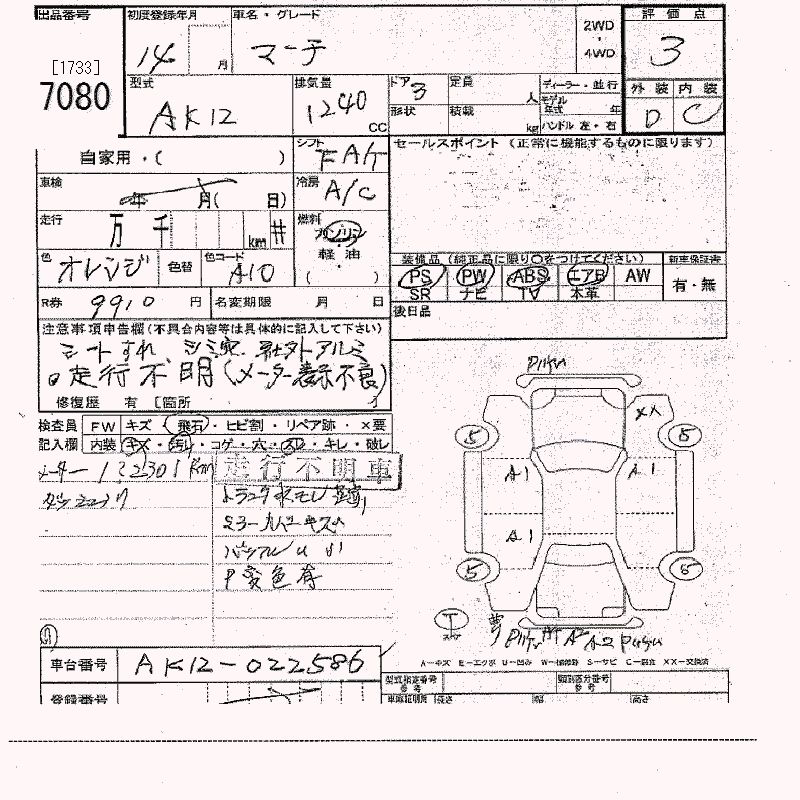 出品番号
[1733]
7080
初度登録年月
14 月
車名・グレード
マーチ
2WD
・
4WD
評価点
3
外装 内装
D C
型式
AK12
排気量
1240
CC
ドア 3
形状
定員
人
積載
kg
ディーラー・並行
モデル
年式 年
ハンドル 左・右
自家用・( )
シフト
FA/T
セールスポイント (正常に機能するものに限ります)
車検
年 月( 日)
冷房
A/C
走行
万 千 km #
燃料
ガソリン
軽油
( )
色
オレンジ
色替
色コード
A10
装備品 (純正品に限り○をつけてください)
PS PW ABS エアB AW
SR ナビ TV 本革
新車保証書
有・無
R券
9910 円
名変期限 月 日
後日品
注意事項申告欄(不具合内容等は具体的に記入して下さい)
シートすれ、シミ穴、社外アルミ
走行不明(メーター表示不良)
修復歴 有 [箇所
検査員
記入欄
FW キズ・飛石・ヒビ割・リペア跡・×要
内装 キズ・汚れ・コゲ・穴・スレ・キレ・破レ
メーター132301km
走行不明車
トランク水モレ跡
ミラーカバーキズ
P変色有
5 5
XX
A1 A1
A1
5 5
A2
A-キズ E-エクボ U-凹み W-補修跡 S-サビ C-腐食 XX-交換済
車台番号
AK12-022586
登録番号
型式指定番号
参考
類別区分番号
参考
長さ 幅 高さ